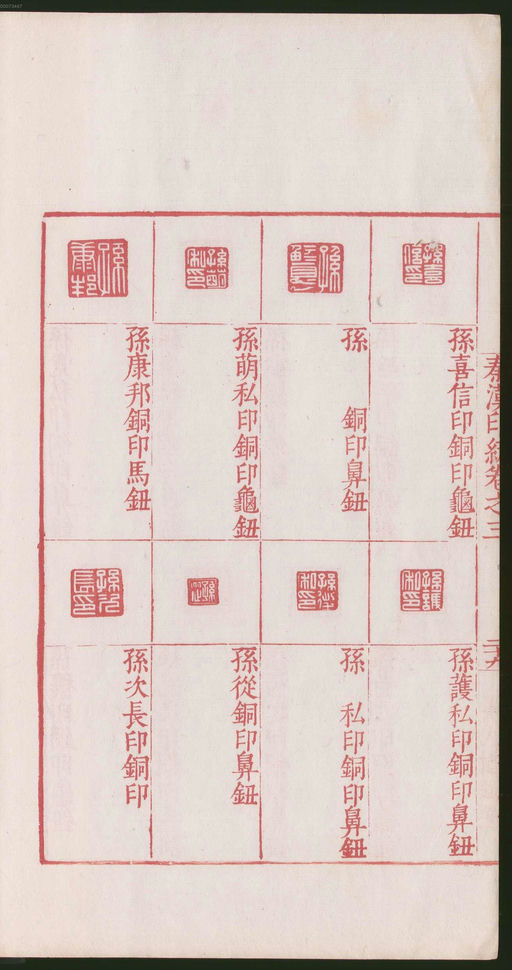 00073447
秦漢印統卷之三
孫喜信印銅印龜鈕
孫 銅印鼻鈕
孫萌私印銅印龜鈕
孫康邦銅印馬鈕
孫護私印銅印鼻鈕
孫 私印銅印鼻鈕
孫從銅印鼻鈕
孫次長印銅印